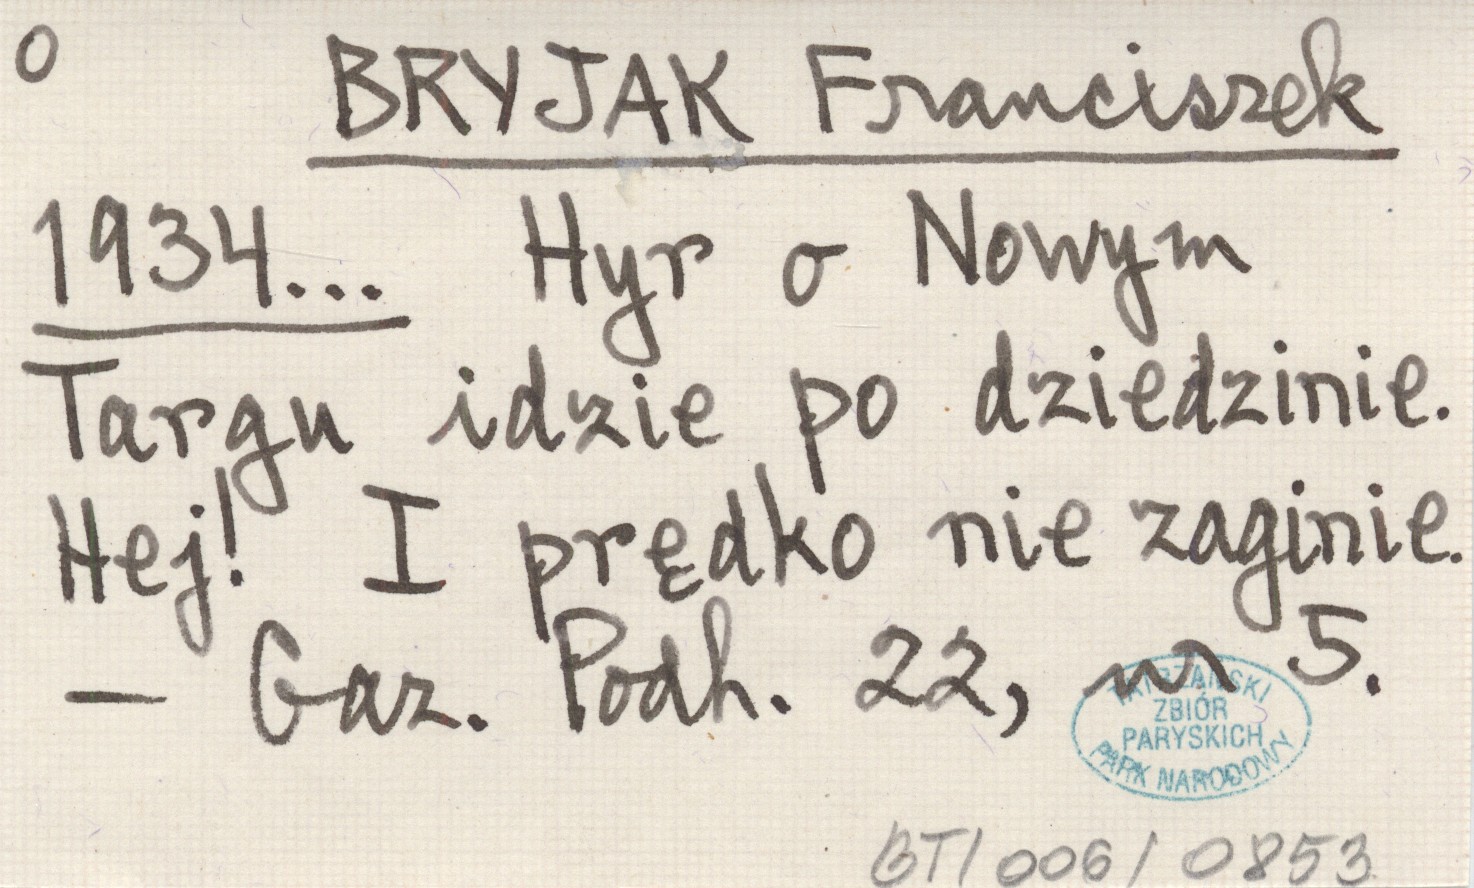 o BRYJAK Franciszek
1934... Hyr o Nowym
Targu idzie po dziedzinie.
Hej! I prędko nie zaginie.
— Gaz. Podh. 22, nr 5.
TATRZAŃSKI
ZBIÓR
PARYSKICH
PARK NARODOWY
BT/006/0853